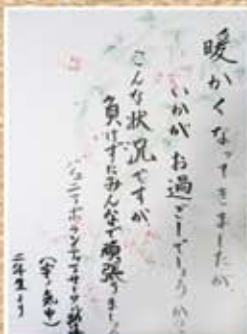 暖かくなってきましたが
いかがお過ごしでしょうか。
こんな状況ですが
負けずにみんなで頑張りましょう
ジュニアボランティアサークル
二年生より